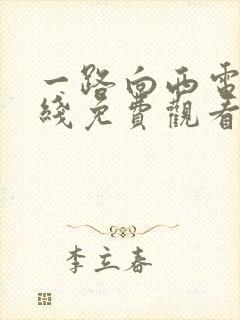 一路向西電
綫免費觀看
李立春